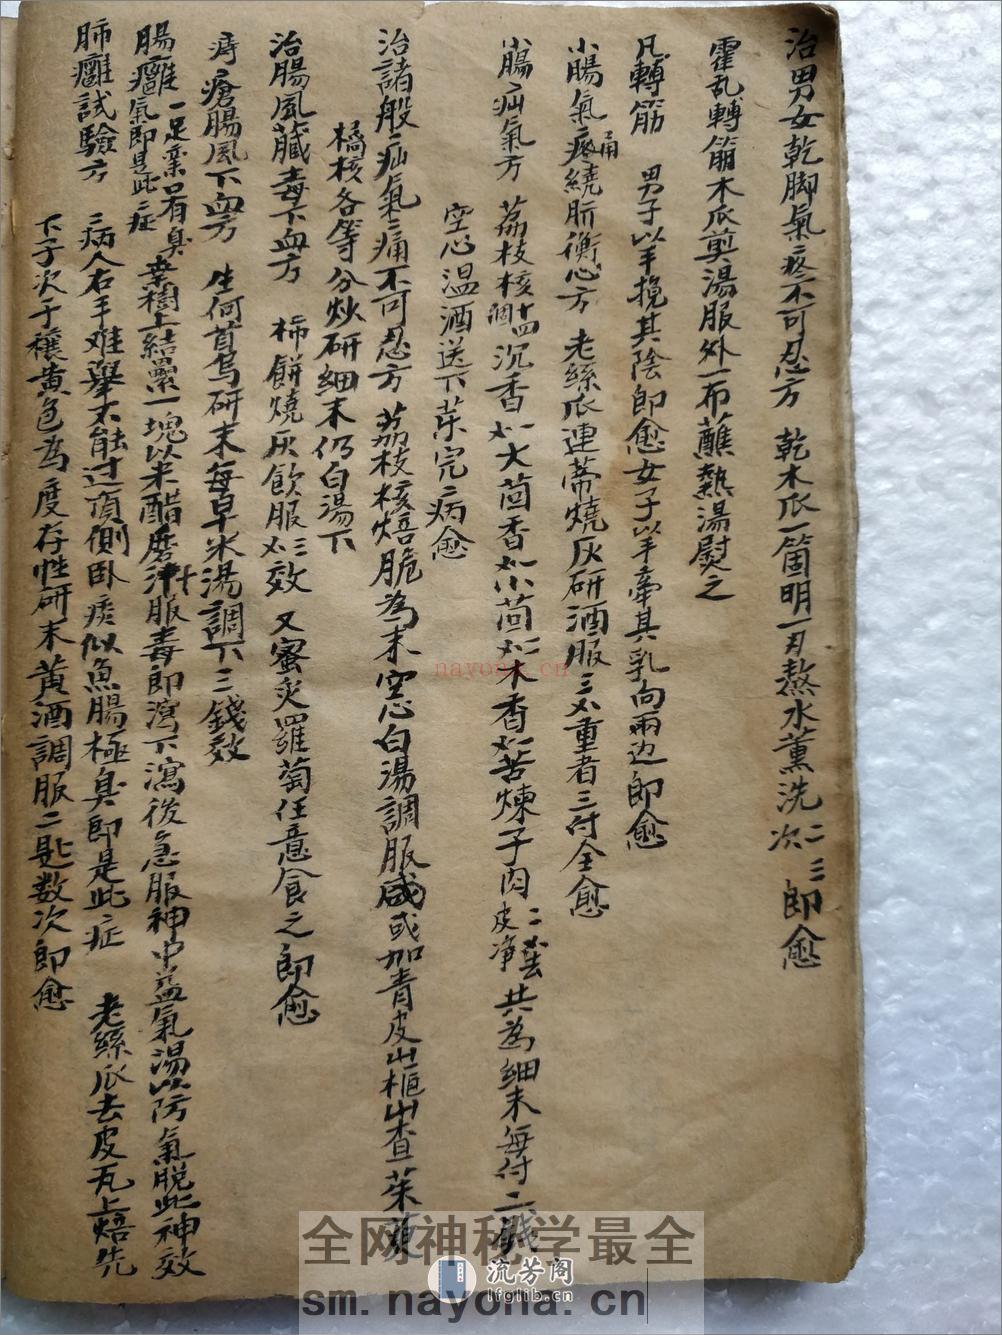 治男女乾脚氣疼不可忍方 乾木瓜一箇明一刃熬水薰洗二三次即愈
霍乱轉筋木瓜煎湯服外一布蘸熱湯熨之
凡轉筋 男子以手挽其陰即愈女子以手牽其乳向兩边即愈
小腸氣痛繞肝衡心方 老絲瓜連蒂燒灰研酒服三重者三付全愈
小腸疝氣方 荔枝核十四個沉香大茴香小茴木香苦煉子肉皮净二共為細末每付二錢
空心温酒送下菜完病愈
治諸般疝氣痛不可忍方 荔枝核焙脆為末空心白湯調服或加青皮山梔山查茱萸
橘核各等分炒研細末仍白湯下
治腸風臟毒下血方 柿餅燒灰飲服效 又蜜炙羅蔔任意食之即愈
痔瘡腸風下血方 生何首烏研末每早米湯調下三錢效
腸癰一足棗口有臭氣即是此症 棗樹上結壘一塊以米醋磨汁服毒即瀉下瀉後急服神中益氣湯以防氣脱此神效
肺癰試驗方 病人右手难舉不能过頂側卧痰似魚腸極臭即是此症 老絲瓜去皮瓦上焙先
下子次于穰黄色為度存性研末黄酒調服二匙数次即愈
nayona.cn
全网神秘学最全
流芳阁
lfglib.com
sm.nayona.cn